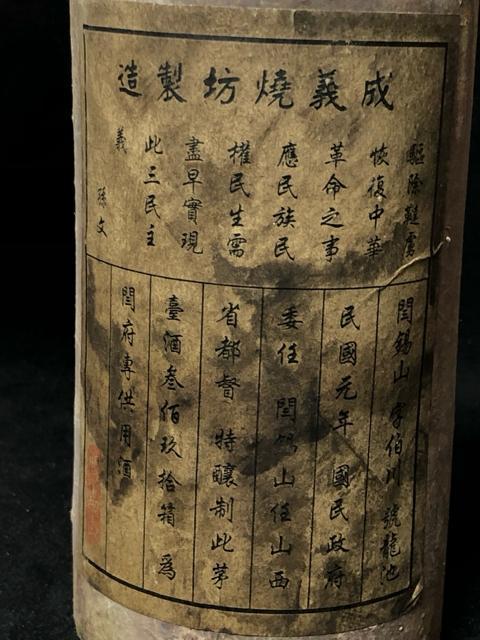 成義燒坊製造
驅除韃虜
恢復中華
革命之事
應民族民
權民生需
盡早實現
此三民主
義 孫文
閻錫山 字伯川 號龍池
民國元年 國民政府
委任 閻錫山任山西
省都督 特釀制此茅
臺酒叁佰玖拾箱 爲
閻府專供用酒